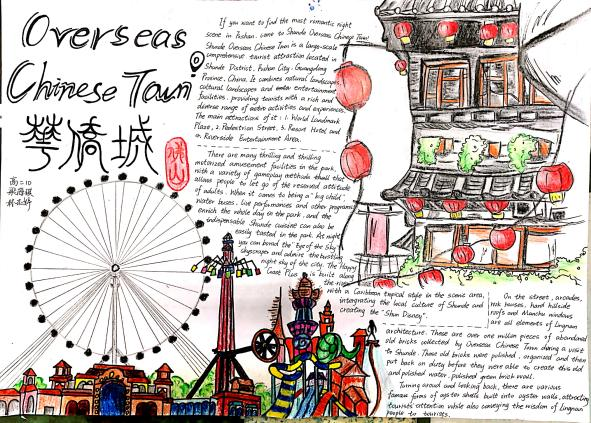 Overseas
Chinese Town
華僑城
佛山
高二10
If you want to find the most romantic night
scene in Foshan, come to Shunde Overseas Chinese Town!
Shunde Overseas Chinese Town is a large-scale
comprehensive tourist attraction located in
Shunde District, Foshan City, Guangdong
Province, China. It combines natural landscape,
cultural landscapes and entertainment
facilities, providing tourists with a rich and
diverse range of activities and experiences.
The main attractions of it: 1. World Landmark
Plaza, 2. Pedestrian Street, 3. Resort Hotel and
4. Riverside Entertainment Area.
There are many thrilling and thrilling
motorized amusement facilities in the park,
with a variety of gameplay methods that
allows people to let go of the reserved attitude
of adults. When it comes to being a "big child",
water buses, live performances and other programs
enrich the whole day in the park, and the
indispensable Shunde cuisine can also be
easily tasted in the park. At night
you can board the "Eye of the Sky"
skyscraper and admire the bustling
night sky of the city. The Happy
Coast Plus is built along
the river
with a Caribbean tropical style in the scenic area,
intergrating the local culture of Shunde and
creating the "Shun Disney".
On the street, arcades,
wok houses, hard hillside
roofs and Manchu windows
are all elements of Lingnan
architecture. There are over one million pieces of abandoned
old bricks collected by Overseas Chinese Town during a visit
to Shunde. These old bricks were polished, organized and then
put back on dirty before they were able to create this old
and polished water polished green brick wall.
Turning around and looking back, there are various
famous forms of oyster shells built into oyster walls, attracting
tourists' attention while also conveying the wisdom of Lingnan
people to tourists.